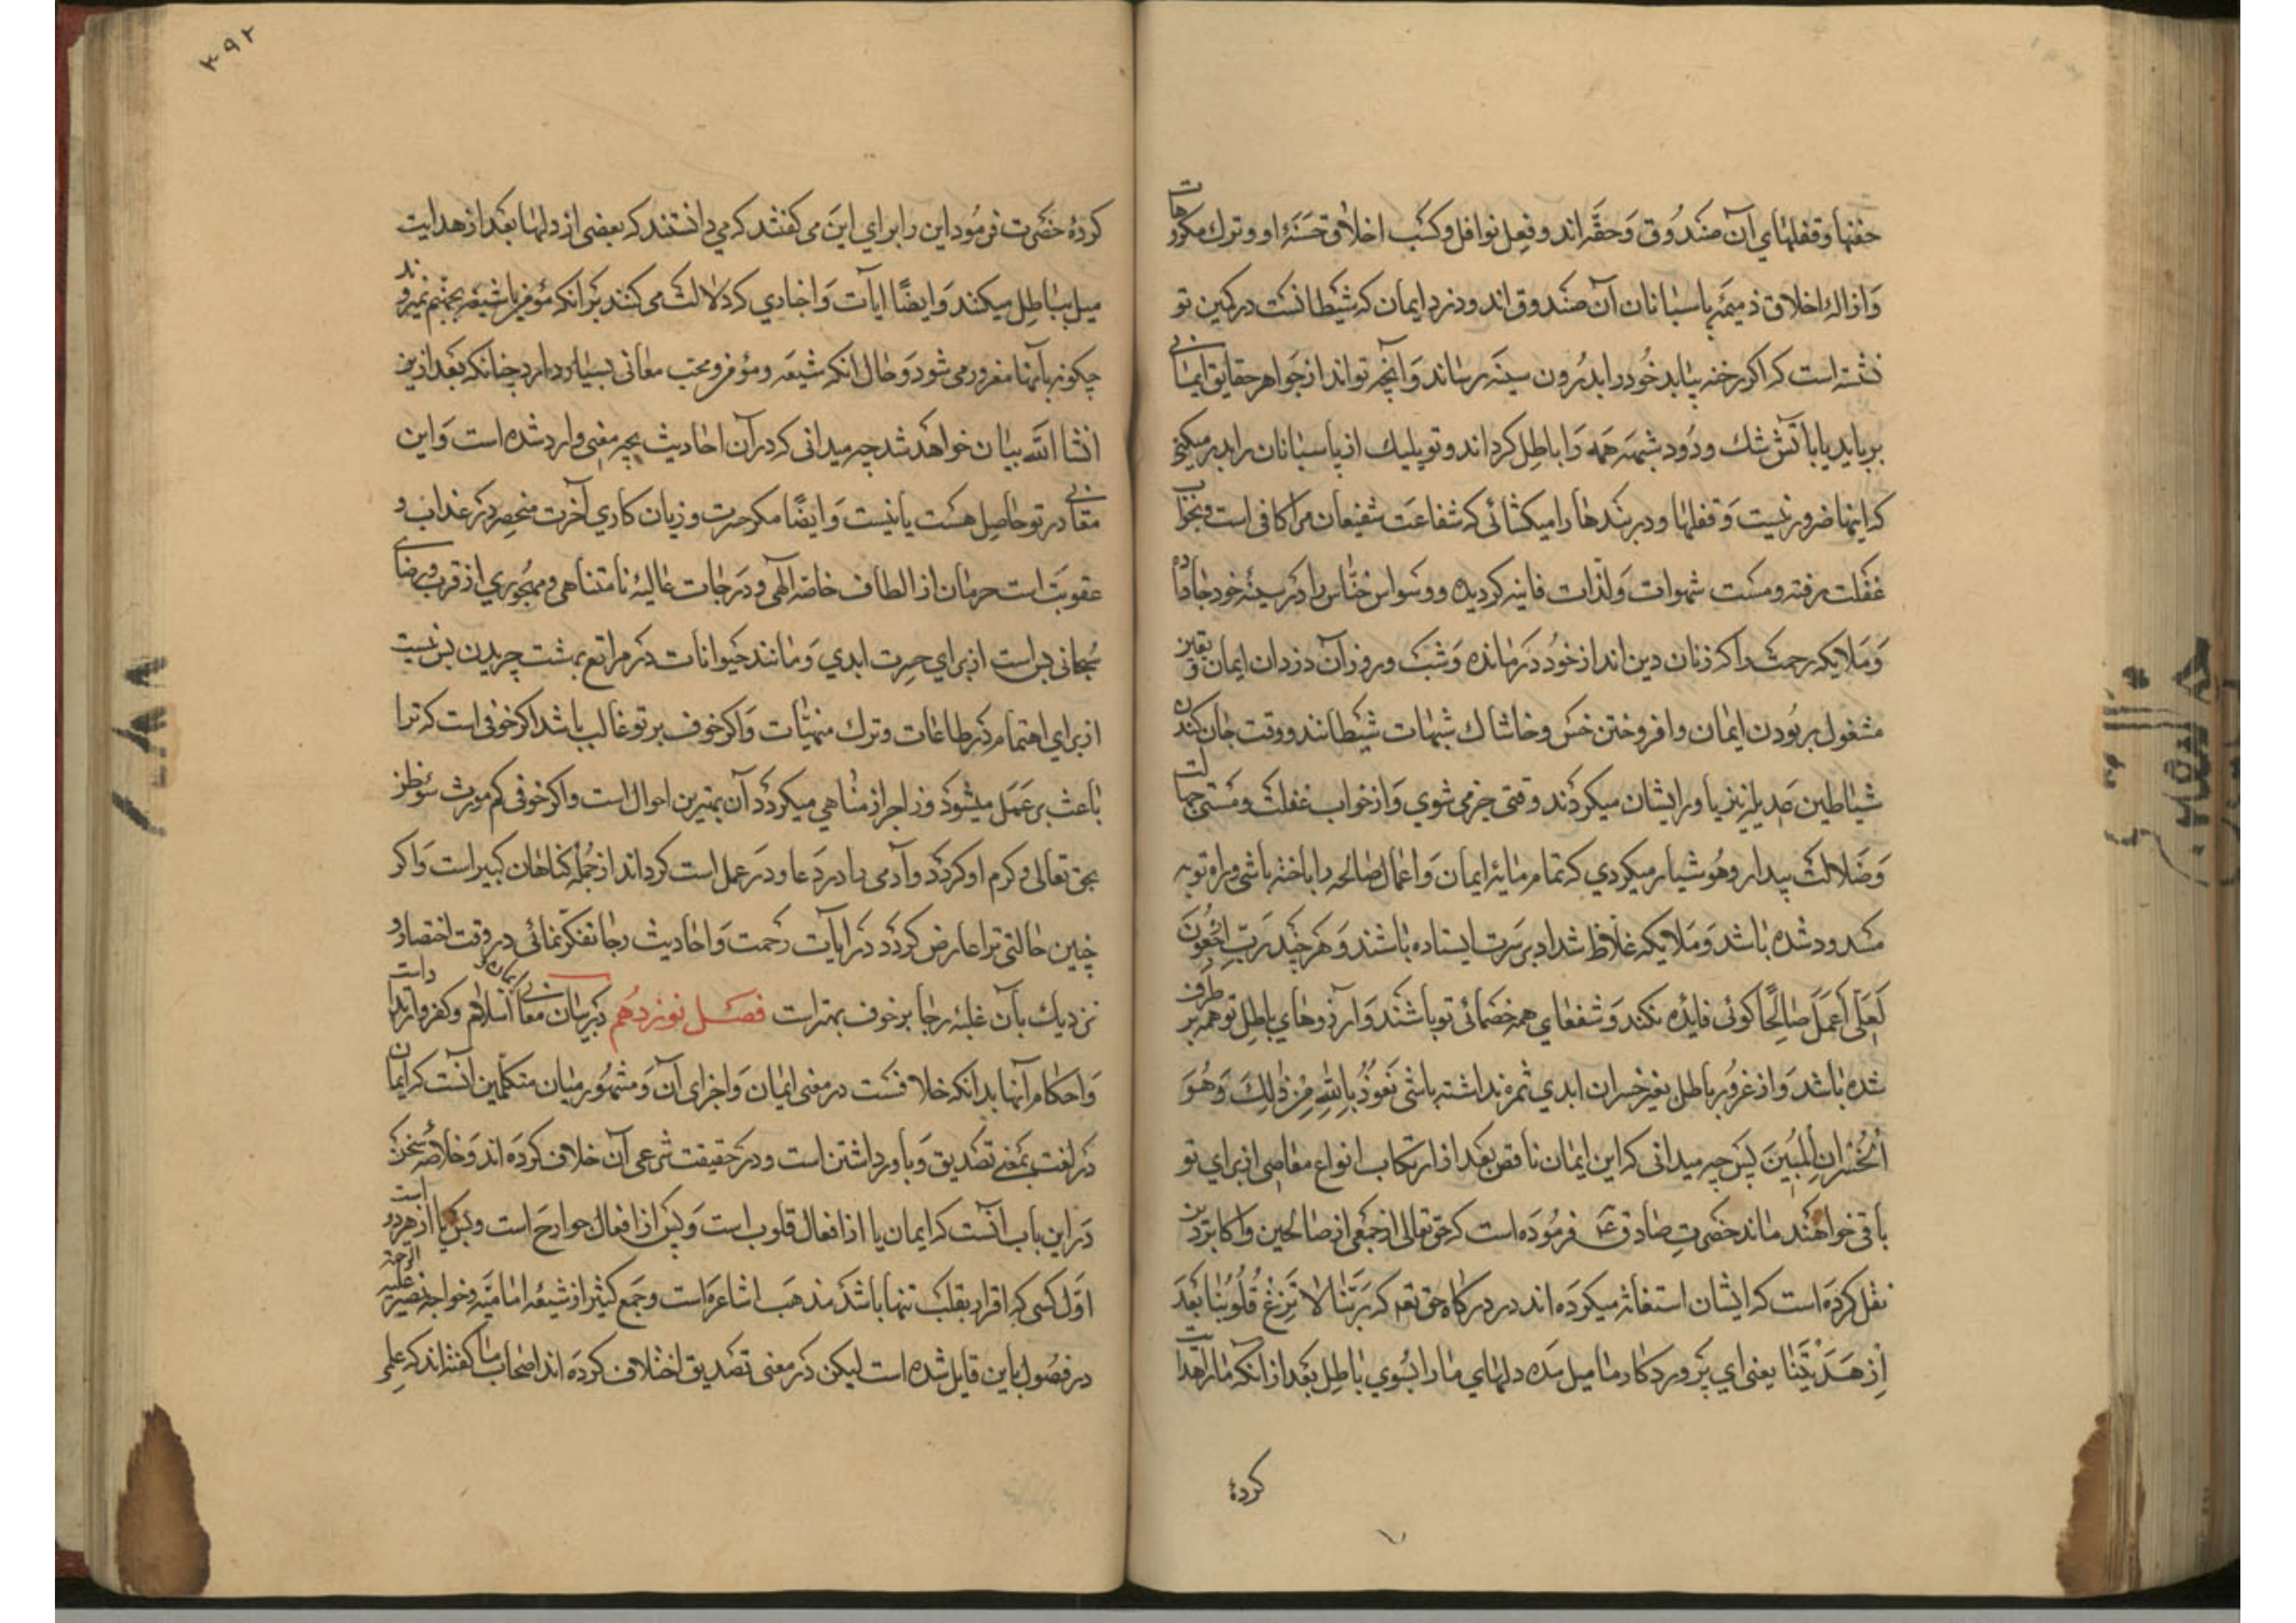 حفنها و قفلهای آن صندوق و حقه‌اند و فعل نوافل و کسب اخلاق حسنه او و ترک مکروهات
و ازاله اخلاق ذمیمه پاسبانان آن صندوق اند و دزد ایمان که شیطانست در کمین تو
نشسته است که اگر رخنه بیابد خود را بدرون سینه رساند و آنچه تواند از جواهر حقایق ایمانی
برباید یا باتش شک و دود شبهه همه را باطل کرداند و تو یک یک از پاسبانان را بدر میکنی
که اینها ضرور نیست و قفلها و دربندها را میکشائی که شفاعت شفیعان مرا کافی است و بخواب
غفلت رفته و مست شهوات و لذات فانیه کردیده و وسواس خناس را در سینه خود جا داده
و ملایکه رحمت را که زنان دین اند از خود در مانده و شب و روز آن دزدان ایمان و یقین
مشغول ربودن ایمان و افروختن خس و خاشاک شبهات شیطانند و وقت جان کندن
شیاطین نیز یاور ایشان میکردند وقتی خبر می شوی و از خواب غفلت و مستی جهالت
و ضلالت بیدار و هوشیار میکردی که تمام مایه ایمان و اعمال صالحه را باخته باشی و راه توبه
مسدود شده باشد و ملایکه غلاظ شداد بر سرت ایستاده باشند و هر چند رَبِّ ارْجِعُونَ
لَعَلّی اَعْمَلُ صالِحًا کوئی فایده نکند و شفعای همه خصمائی تو باشند و آرزوهای باطل تو همه بر طرف
شده باشد و از غرور باطل بغیر خسران ابدی ثمره نداشته باشی نَعُوذُ بِاللهِ مِنْ ذٰلِکَ وَ هُوَ
الْخُسْرانِ الْمُبینَ پس چه میدانی که این ایمان ناقص بعد از ارتکاب انواع معاصی از برای تو
باقی خواهند ماند حضرت صادق ع فرموده است که حق تعالی از جمعی از صالحین و اکابر دین
نقل کرده است که ایشان استغاثه میکرده اند در درکاه حق تعم که رَبَّنا لا تُزِغْ قُلُوبَنا بَعْدَ
اِذْ هَدَیْتَنا یعنی ای پروردکار ما میل مده دلهای ما را بسوی باطل بعد از آنکه ما را هدایت
کرده
۳۹۲
کرده حضرت فرمود این را برای این می کفتند که می دانستند که بعضی از دلها بعد از هدایت
میل بباطل میکند و ایضًا ایات و اخباری که دلالت می کنند بر آنکه مؤمن یا شیعه بجهنم نمیروند
چکونه بآنها مغرور می شود و حال انکه شیعه و مؤمن و محب معانی بسیار دارد چنانکه بعد ازین
انشا الله بیان خواهد شد چه میدانی که در آن احادیث بچه معنی وارد شده است و این
معانی در تو حاصل هست یا نیست و ایضًا مکر حسرت و زیان کاری آخرت منحصر در عذاب و
عقوبت است حرمان از الطاف خاصه الهی و درجات عالیه نامتناهی و مهجوری از قرب و رضای
سبحانی بس است از برای حسرت ابدی و مانند حیوانات در مراتع بهشت چریدن بس نیست
از برای اهتمام در طاعات و ترک منهیات و اکر خوف بر تو غالب باشد اکر خوفی است که ترا
باعث بر عمل میشود و زاجر از مناهی میکردد آن بهترین احوال است و اکر خوفی کم مورث سوء ظن
بحق تعالی و کرم او کردد و آدمی را در دعا و در عمل است کرداند از جمله کناهان کبیر است و اکر
چنین حالتی ترا عارض کردد در ایات رحمت و احادیث رجا تفکر نمائی در وقت احتضار و
نزدیک بآن غلبه رجا بر خوف بهتر است فصل نوزدهم در بیان معانی ایمان و اسلام و کفر و ارتداد است
و احکام آنها بدانکه خلافست در معنی ایمان و اجزای آن و مشهور میان متکلمین آنست که ایمان
در لغت بمعنی تصدیق و باور داشتن است و در حقیقت شرعی آن خلاف کرده اند و خلاصه سخن
در این باب آنست که ایمان یا از افعال قلوب است و بس از افعال جوارح است و بس یا از هر دو است
اول کسی که اقرار بقلب تنها باشد مذهب اشاعره است و جمع کثیر از شیعه امامیه و خواجه نصیر علیه الرحمه
در فصول باین قایل شده است لیکن در معنی تصدیق اختلاف کرده اند اصحاب ما کفته اند که علمی